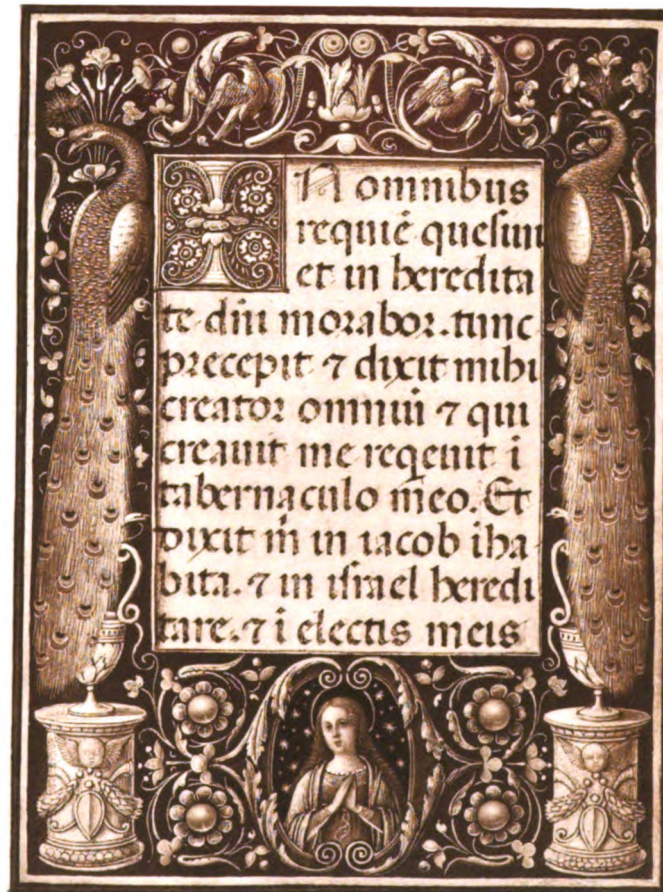 IN omnibus
requiē quesiui
et in heredita
te dñi morabor. tunc
precepit ⁊ dixit mihi
creator omniū ⁊ qui
creauit me reqeuit ī
tabernaculo meo. Et
dixit m̃ in iacob iha
bita. ⁊ in israel heredi
tare. ⁊ ī electis meis